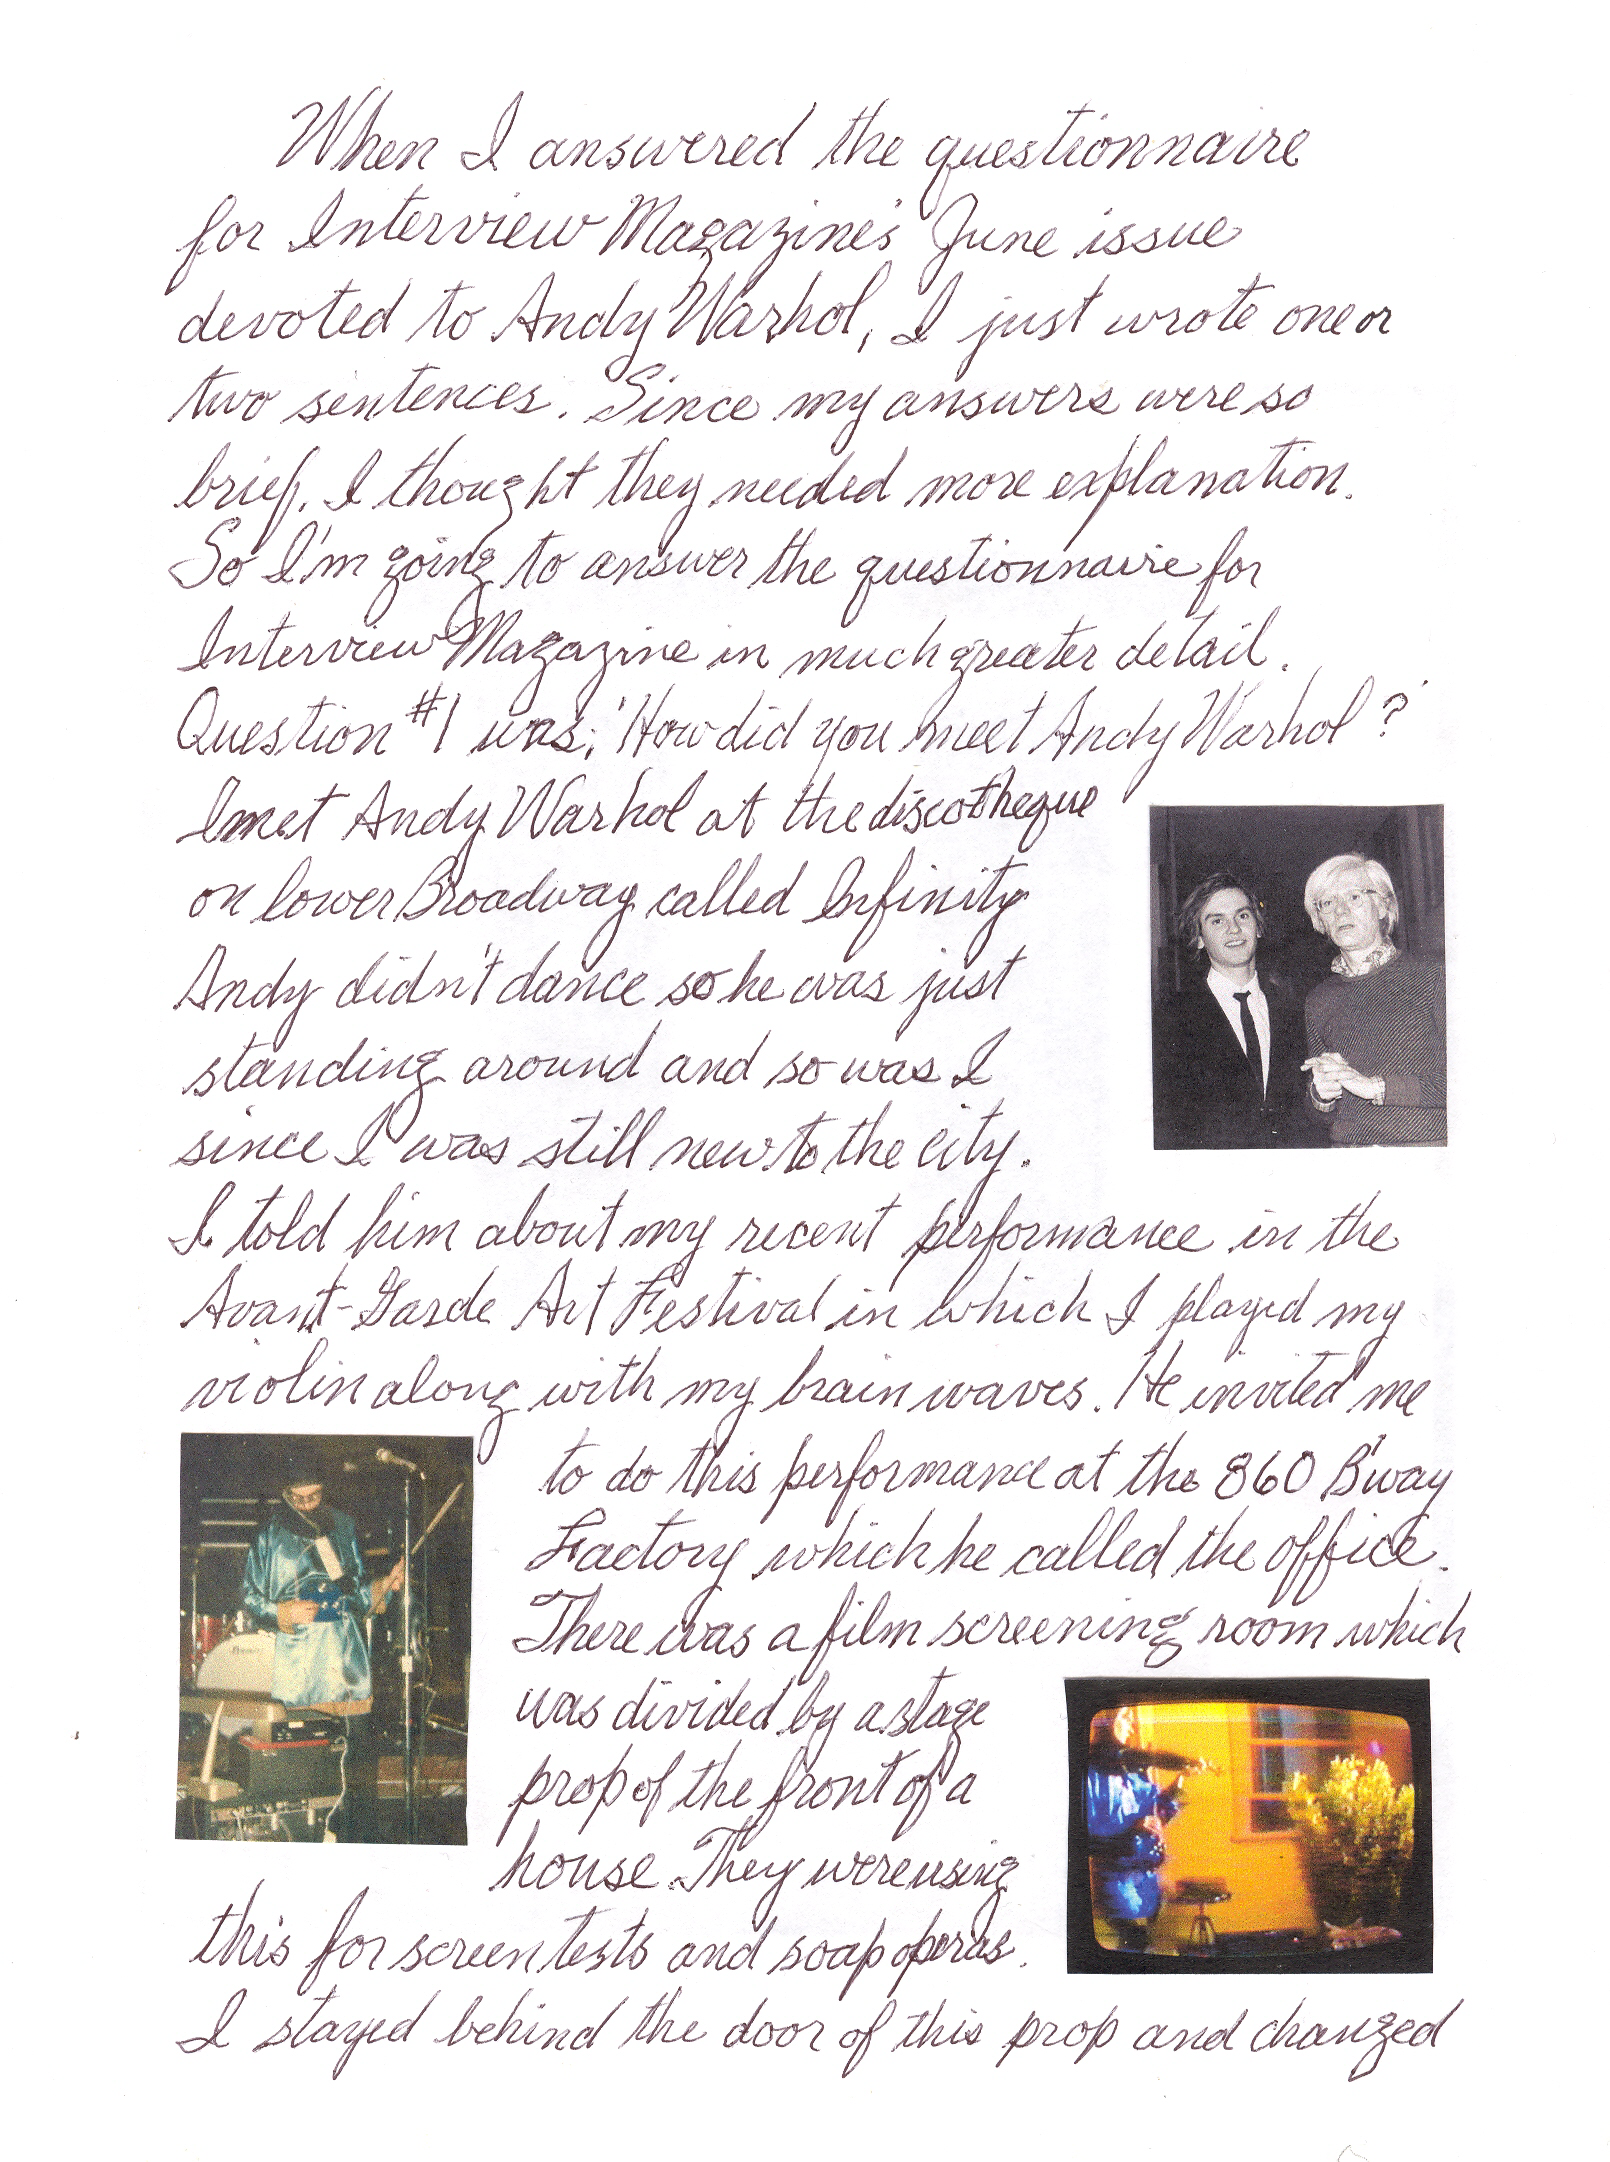 When I answered the questionnaire
for Interview Magazine's June issue
devoted to Andy Warhol, I just wrote one or
two sentences. Since my answers were so
brief, I thought they needed more explanation.
So I'm going to answer the questionnaire for
Interview Magazine in much greater detail.
Question #1 was; 'How did you meet Andy Warhol?'
I met Andy Warhol at the discotheque
on lower Broadway called Infinity
Andy didn't dance so he was just
standing around and so was I
since I was still new to the city.
I told him about my recent performance in the
Avant-Garde Art Festival in which I played my
violin along with my brain waves. He invited me
to do this performance at the 860 B'way
Factory which he called the office.
There was a film screening room which
was divided by a stage
prop of the front of a
house. They were using
this for screen tests and soap operas.
I stayed behind the door of this prop and changed